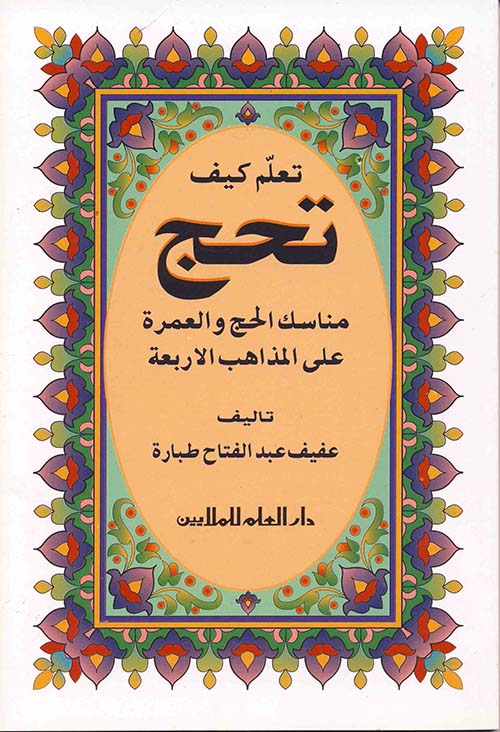 تعلّم كيف
تحج
مناسك الحج والعمرة
على المذاهب الاربعة
تاليف
عفيف عبد الفتاح طبارة
دار العلم للملايين